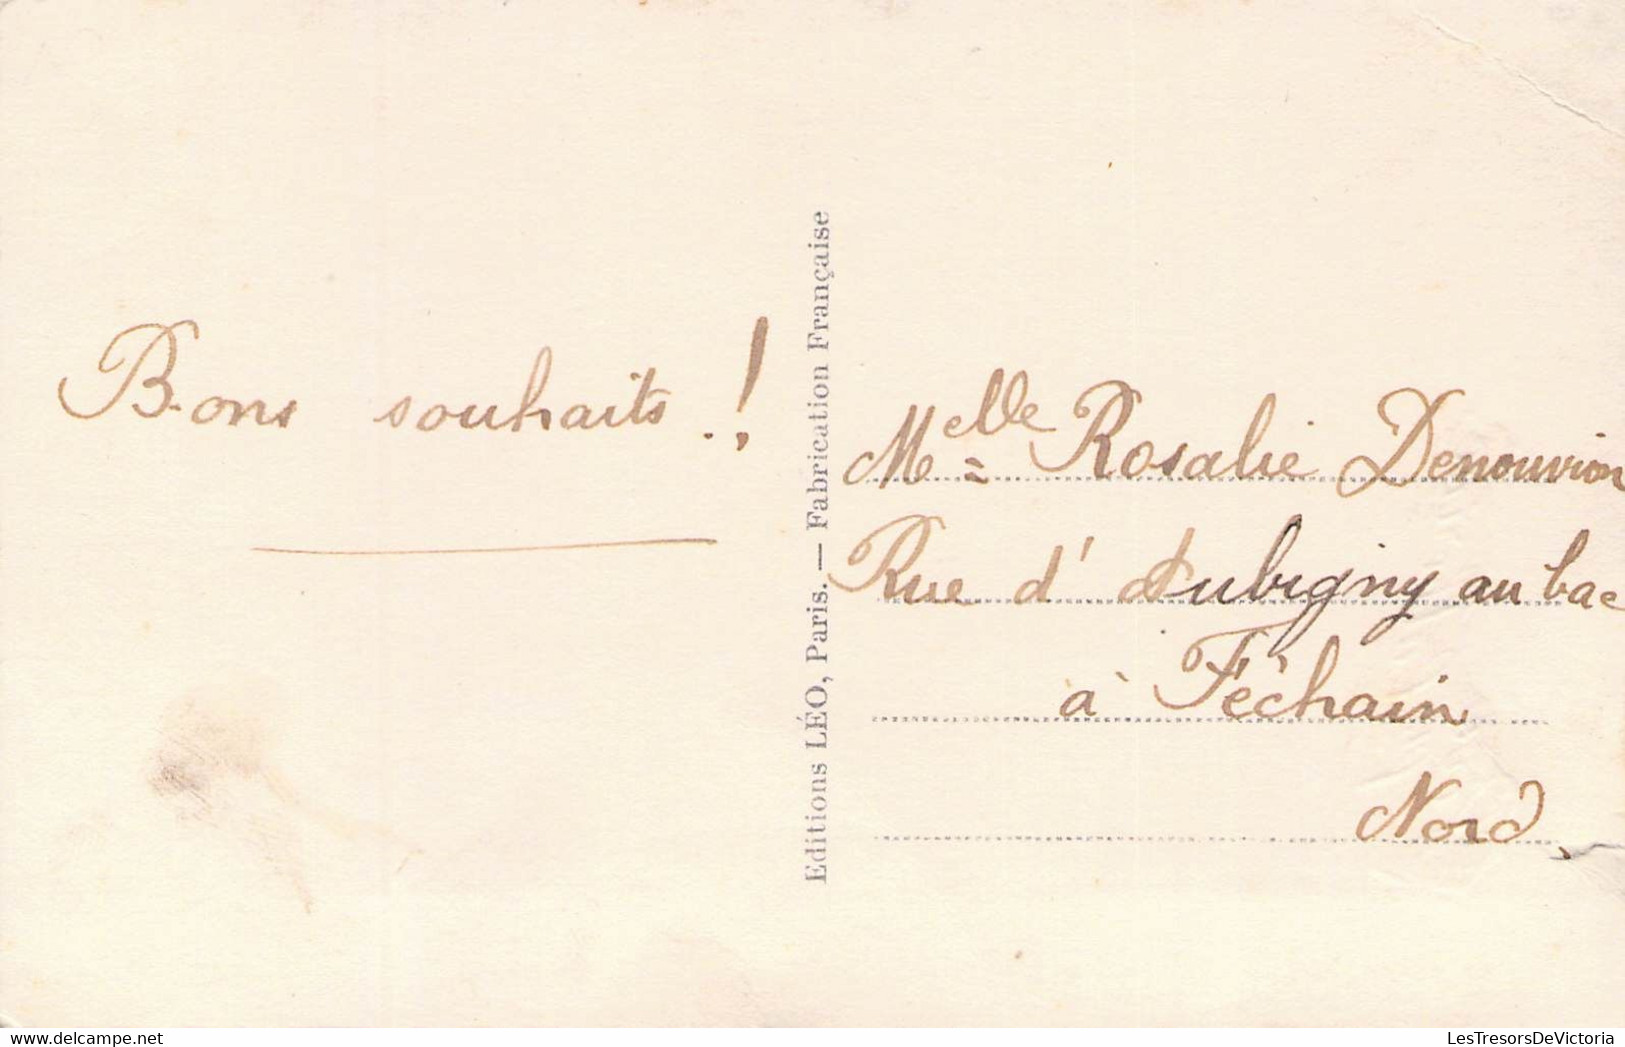 Bons souhaits.!
Editions LÉO, Paris. — Fabrication Française
Melle Rosalie Denouvion
Rue d'Aubigny au bac
à Féchain
Nord.
LesTresorsDeVictoria